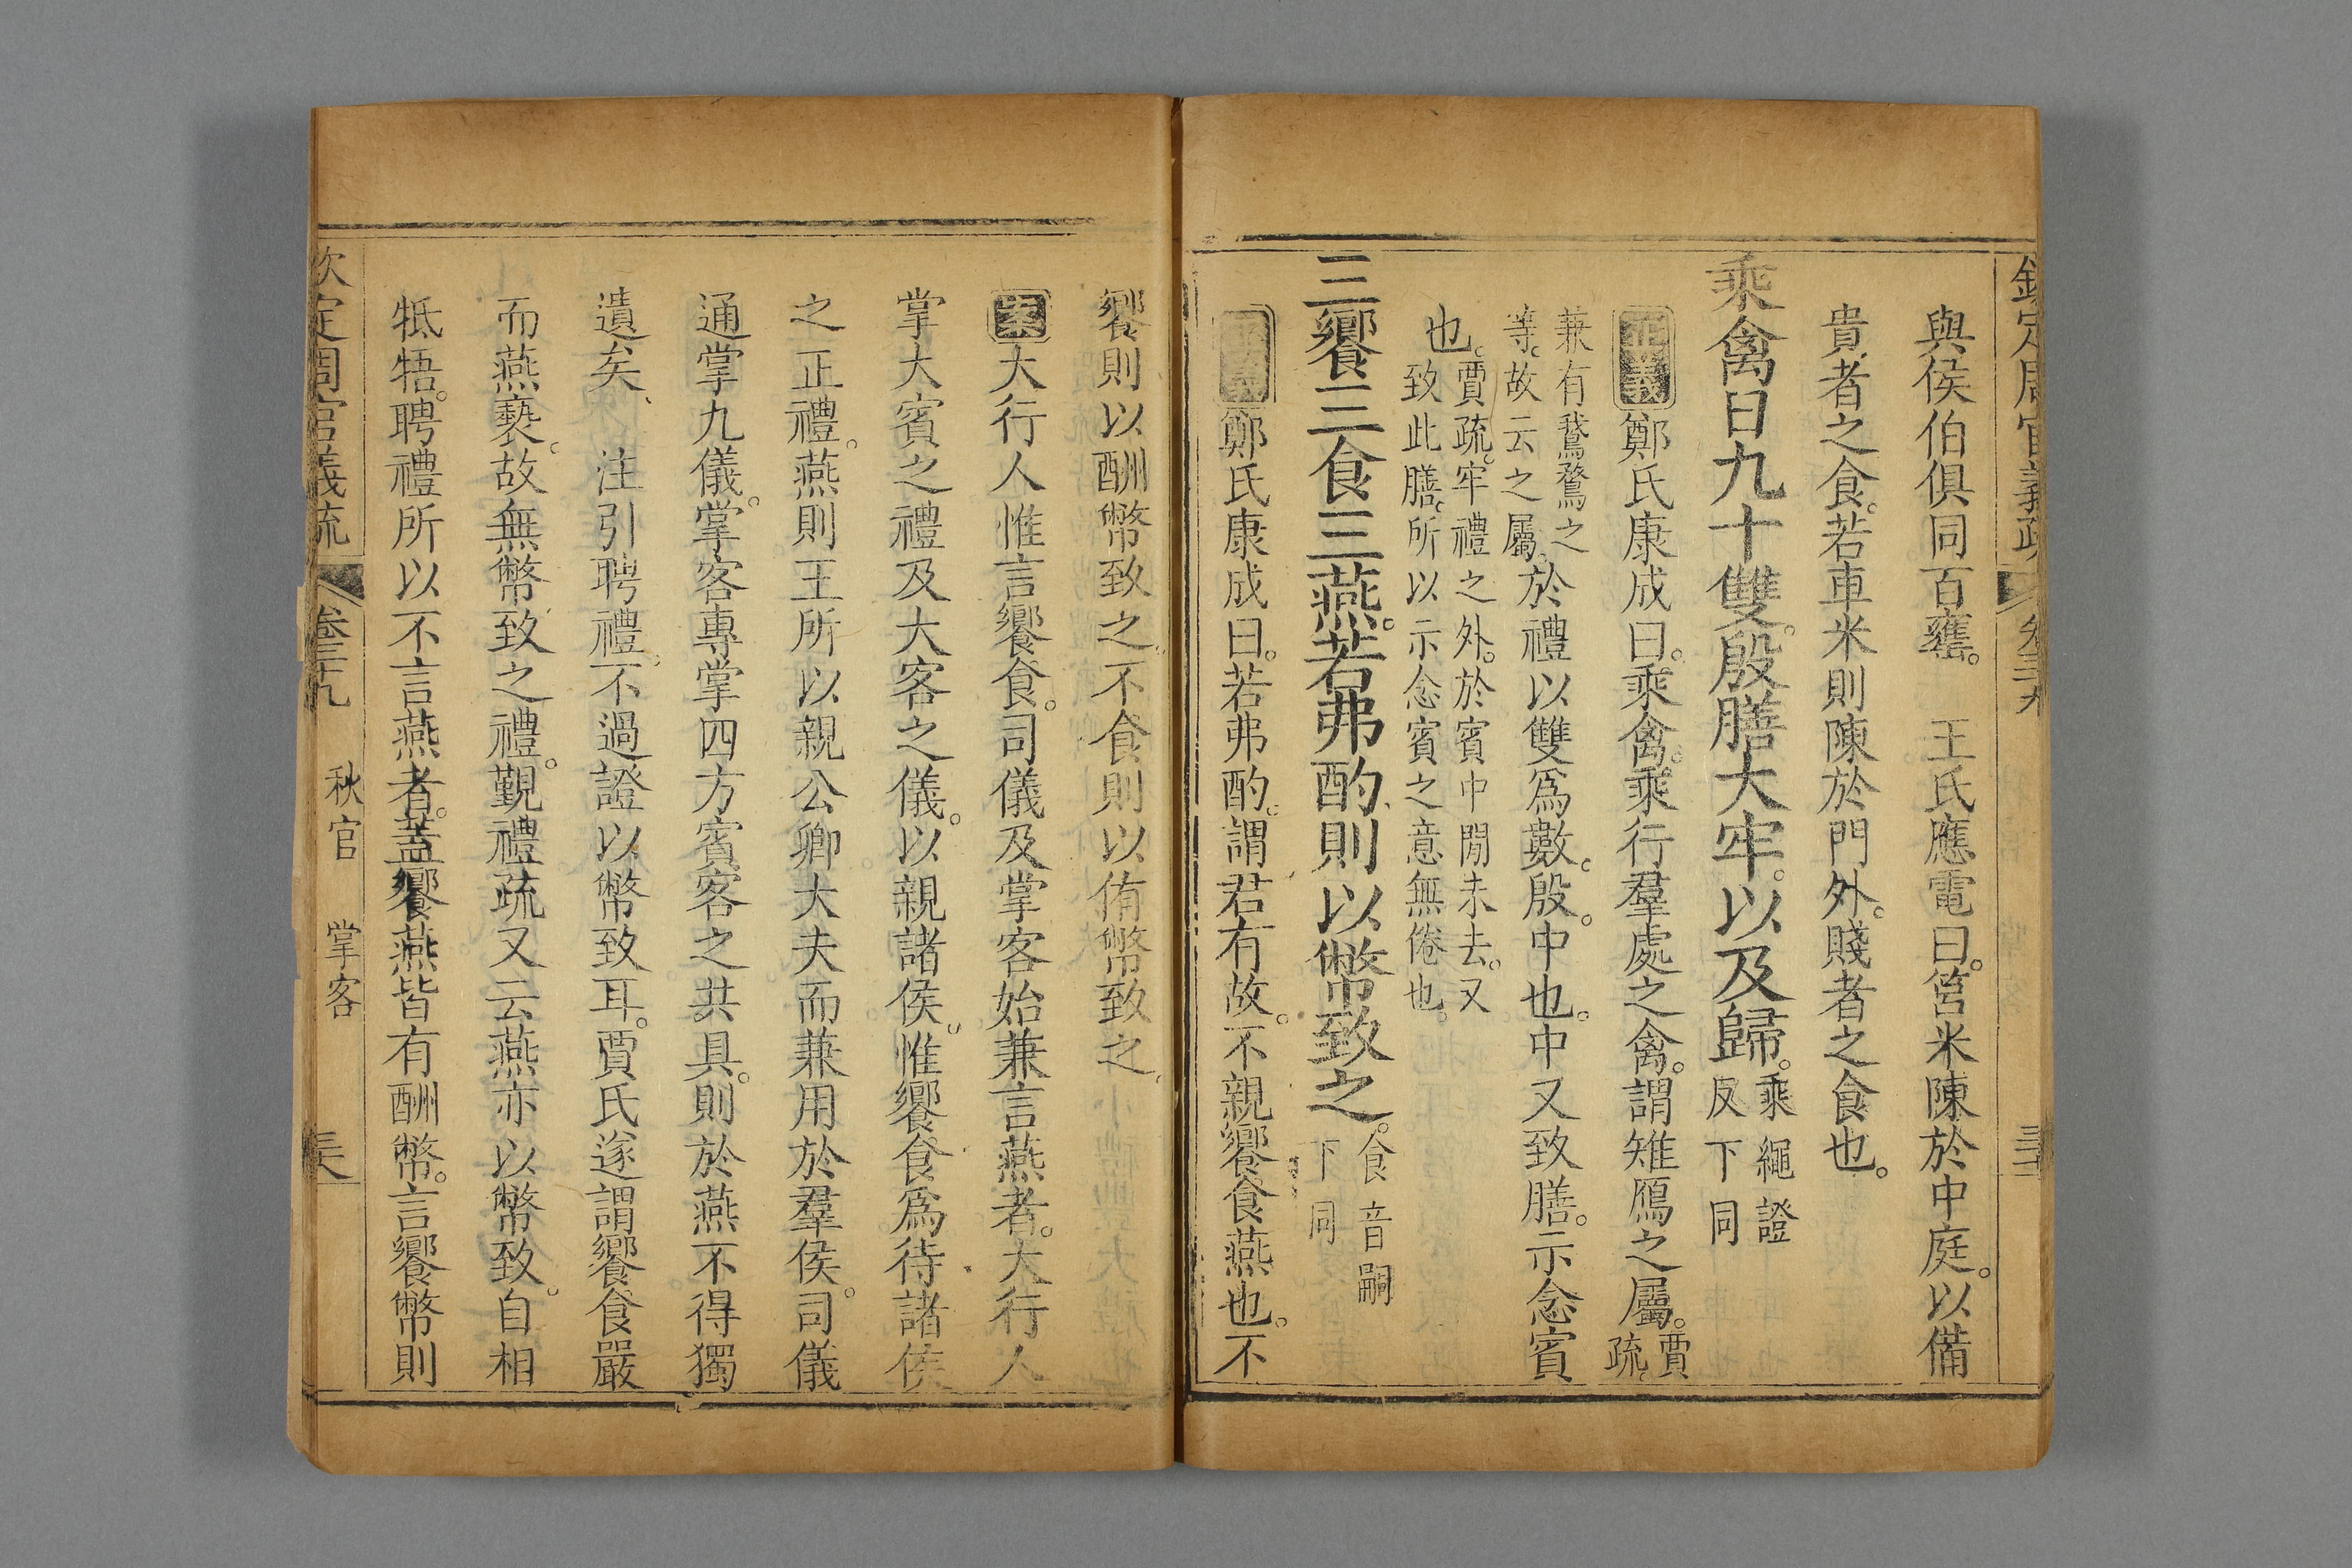 欽定周官義疏 卷三十九
與侯伯俱同百罋。 王氏應電曰。筥米陳於中庭。以備
貴者之食。若車米則陳於門外。賤者之食也。
乘禽日九十雙。殷膳大牢。以及歸。乘繩證反下同
正義鄭氏康成曰。乘禽。乘行羣處之禽。謂雉鴈之屬。賈疏
兼有鵞鶩之等。故云之屬。於禮以雙爲數。殷。中也。中又致膳。示念賓
也。賈疏。牢禮之外。於賓中閒未去。又致此膳。所以示念賓之意無倦也。
三饗三食三燕。若弗酌則以幣致之。食音嗣下同
正義鄭氏康成曰。若弗酌。謂君有故。不親饗食燕也。不
饗則以酬幣致之。不食則以侑幣致之。
案大行人惟言饗食。司儀及掌客始兼言燕者。大行人
掌大賓之禮及大客之儀。以親諸侯。惟饗食爲待諸侯
之正禮。燕則王所以親公卿大夫而兼用於羣侯。司儀
通掌九儀。掌客專掌四方賓客之共具。則於燕不得獨
遺矣、 注引聘禮。不過證以幣致耳。賈氏遂謂饗食嚴
而燕褻。故無幣致之禮。覲禮疏又云燕亦以幣致。自相
牴牾。聘禮所以不言燕者。蓋饗燕皆有酬幣。言饗幣則
欽定周官義疏 卷三十九 秋官 掌客